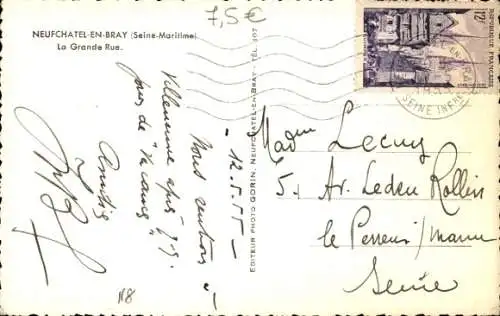 7,5€
NEUFCHATEL-EN-BRAY (Seine-Maritime)
La Grande Rue.
- 12.5.55 -
Nous rentrons à
Villeneuve après
jours de "Vacances"
Amitiés
EDITEUR PHOTO GORIN, NEUFCHATEL-EN-BRAY - TÉL. 107
12F
REPUBLIQUE FRANÇAISE
SEINE INFRE
Mad Lecuy
5, Av. Ledru Rollin
le Perreux/Marne
Seine